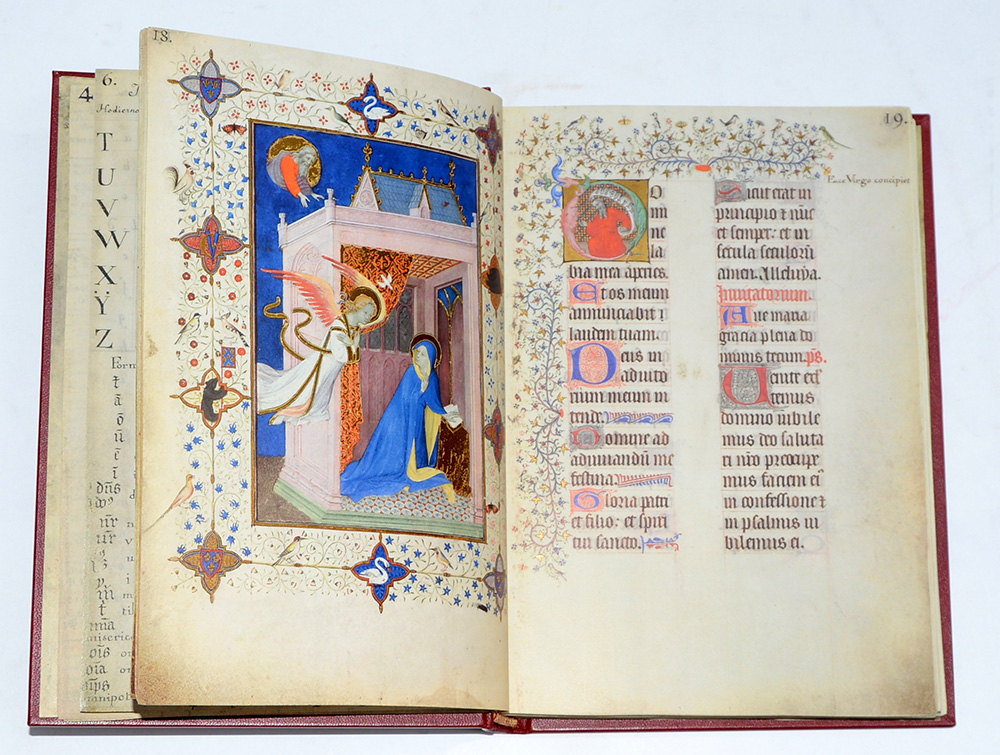 4
6.
Hodierno
T
U
V
W
X
Ÿ
Z
Form
ā
ō
ū
ē
ī
18.
19.
Ecce Virgo concipiet
Do
mi
ne
la
bia mea apries.
Et os meum
annunciabit ⁊
laudem tuam.
Deus in
adiuto
rium meum in
tende.
Domine ad
adiuuandū me
festina.
Gloria patri
et filio: et spiri
tui sancto.
Sicut erat in
principio ⁊ nūc
et semper: et in
secula seculorū
amen. Alleluya.
Inuitatorium.
Aue maria
gracia plena do
minus tecum. ps.
Uenite exl
temus
domino iubile
mus deo saluta
ri nrō preocupe
mus faciem ei
in confessione ⁊
in psalmis iu
bilemus ei.